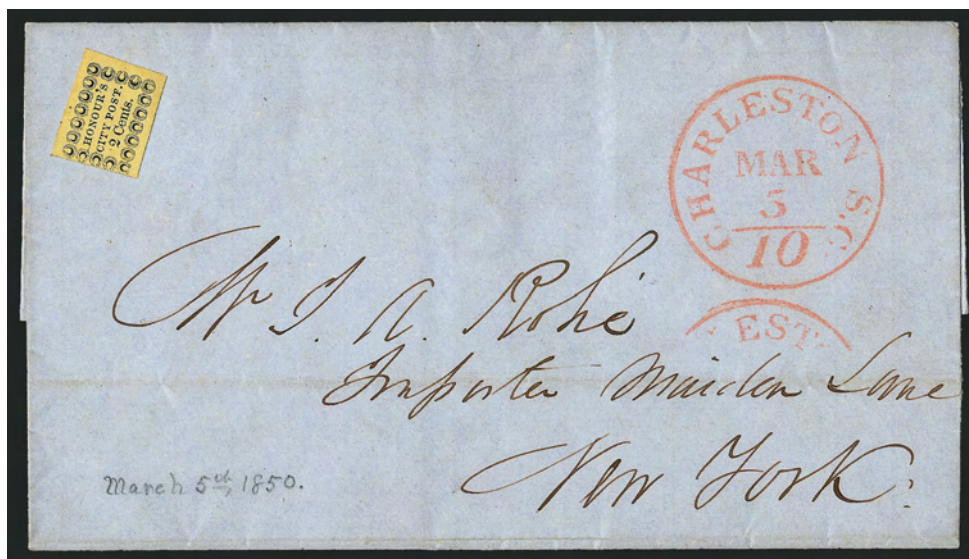 HONOUR'S
CITY POST.
2 Cents.
CHARLESTON S.C.
MAR
5
10
EST
Mr J. A. Rohé
Importer Maiden Lane
New York.
March 5th, 1850.